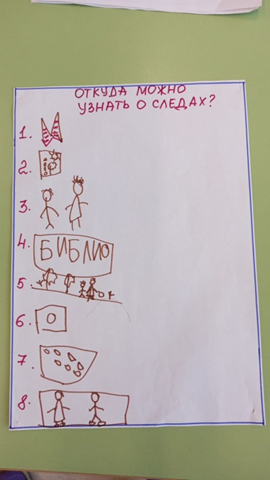 ОТКУДА МОЖНО
УЗНАТЬ О СЛЕДАХ?
1.
2.
3.
4. БИБЛИО
5.
6.
7.
8.